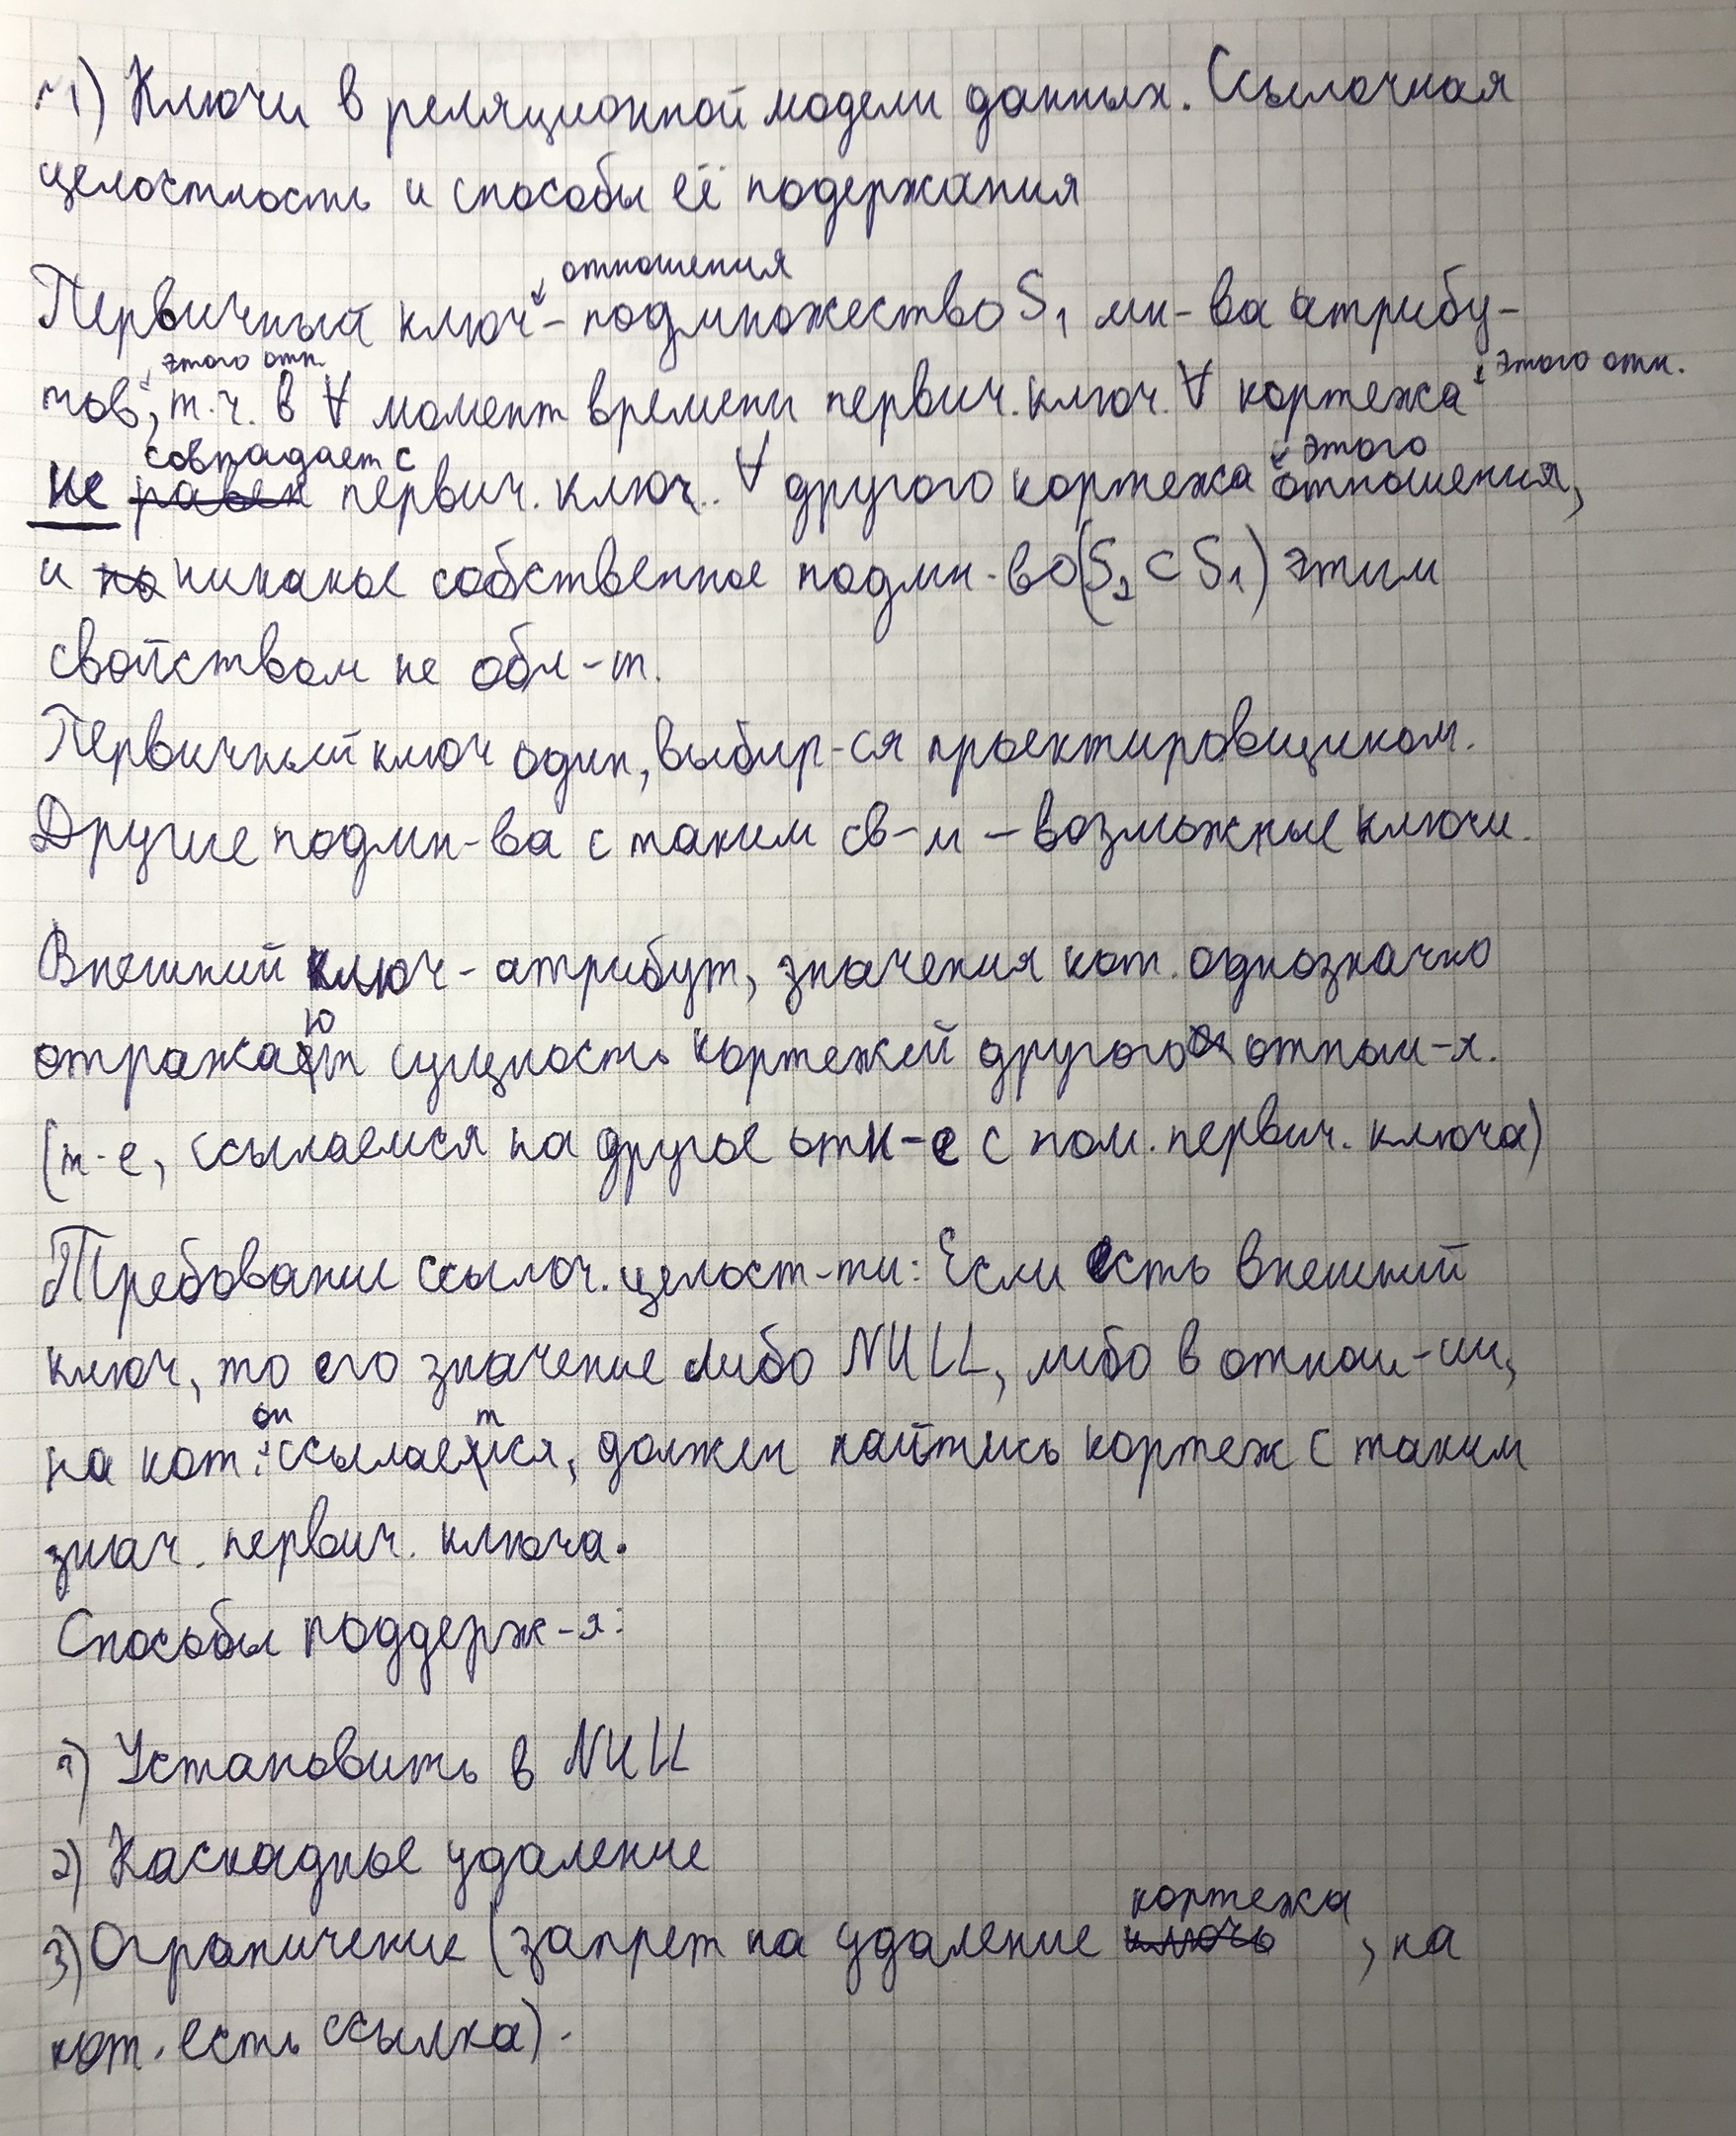 1) Ключи в реляционной модели данных. Ссылочная
целостность и способы её подержания
отношения
Первичный ключ - подмножество S₁ мн-ва атрибу-
этого отн.
этого отн.
тов, т.ч. в ∀ момент времени первич. ключ. ∀ кортежа
совпадает с
этого
не равен первич. ключ. ∀ другого кортежа отношения,
и никакое собственное подмн-во (S₂ ⊂ S₁) этим
свойством не обл-т.
Первичный ключ один, выбир-ся проектировщиком.
Другие подмн-ва с таким св-м – возможные ключи.
Внешний ключ - атрибут, значения кот. однозначно
отражают сущность кортежей другого отнош-я.
(т-е, ссылаемся на другое отн-е с пом. первич. ключа)
Требование ссылоч. целост-ти: Если есть внешний
ключ, то его значение либо NULL, либо в отнош-ии,
на кот. он ссылается, должен найтись кортеж с таким
знач. первич. ключа.
Способы поддерж-я:
1) Установить в NULL
2) Каскадное удаление
кортежа
3) Ограничение (запрет на удаление ключо, на
кот. есть ссылка).